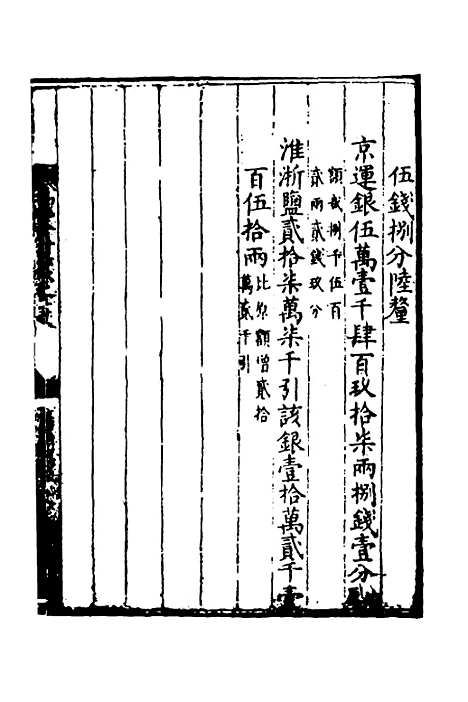 伍錢捌分陸釐
京運銀伍萬壹千肆百玖拾柒兩捌錢壹分
額裁捌千伍百
貳兩貳錢玖分
淮浙鹽貳拾柒萬柒千引該銀壹拾萬貳千壹
百伍拾兩
比原額增貳拾
萬貳千引